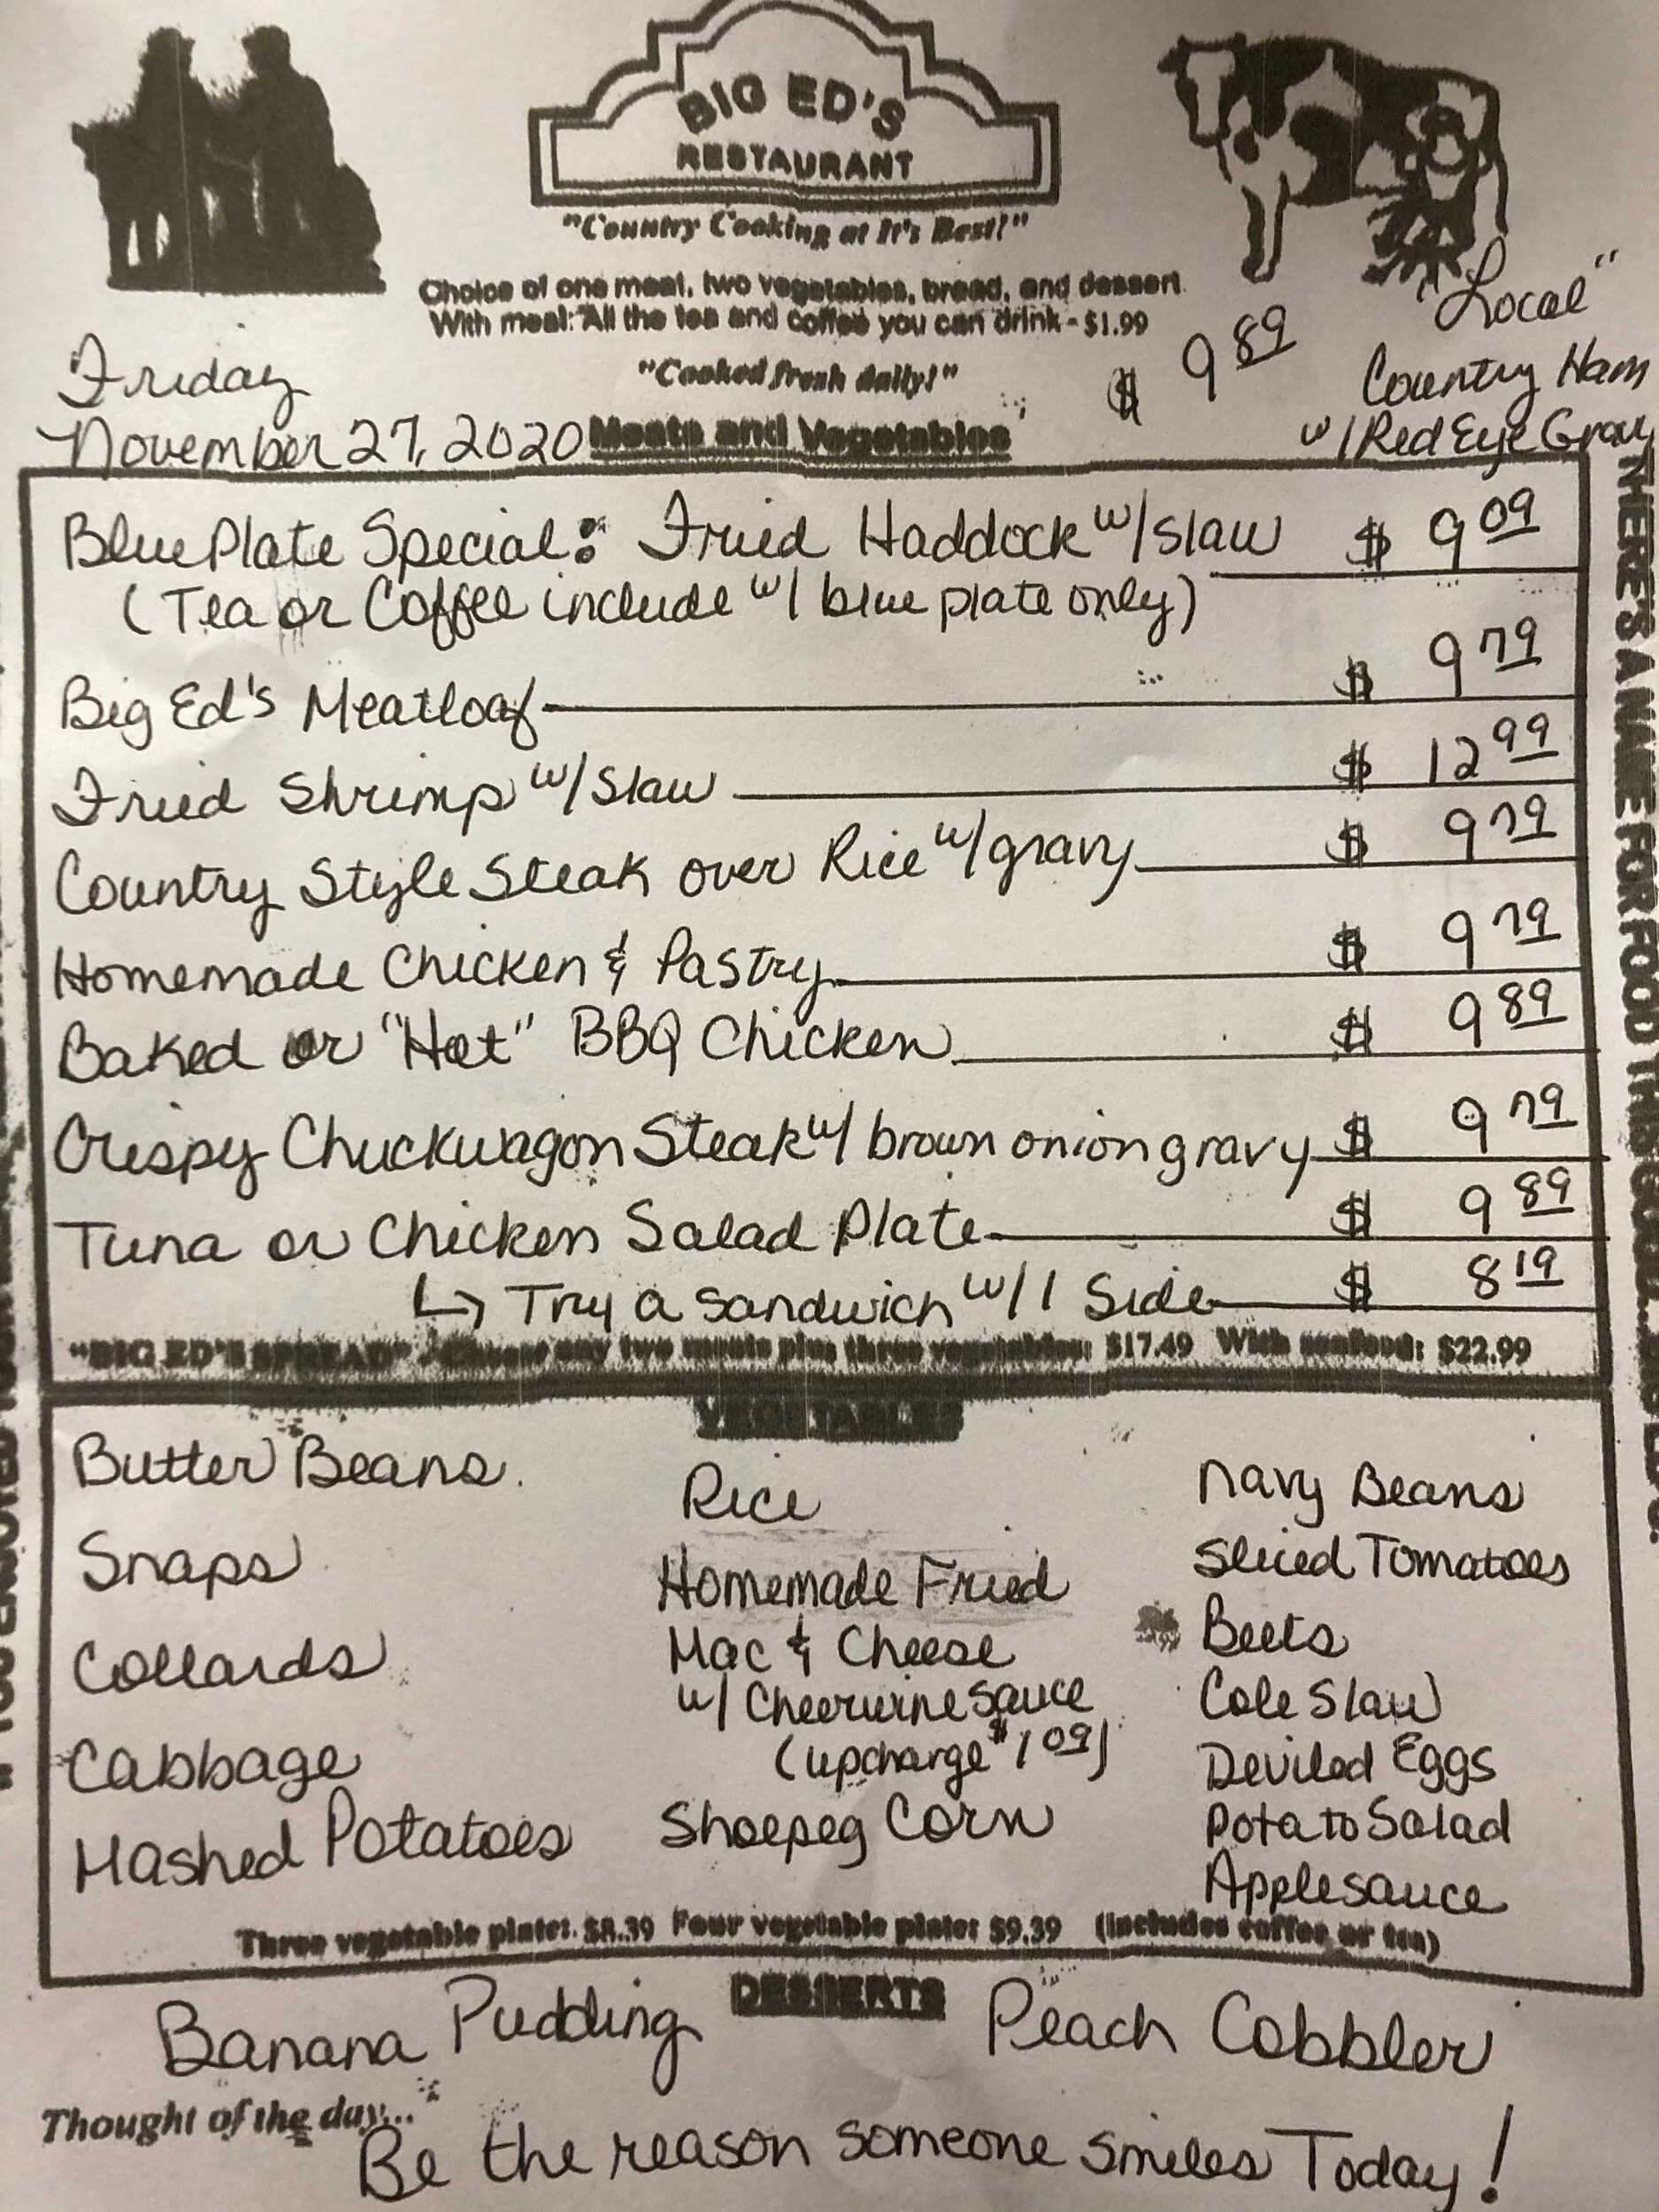 BIG ED'S
RESTAURANT
"Country Cooking at It's Best!"
Choice of one meat, two vegetables, bread, and dessert
With meal: "All the tea and coffee you can drink - $1.99
"Cooked fresh daily!"
Friday
November 27, 2020
"Local"
Country Ham
w/ Red Eye Gravy
$ 9 89
Meats and Vegetables
Blue Plate Special: Fried Haddock w/ Slaw $ 9 09
(Tea or Coffee include w/ blue plate only)
Big Ed's Meatloaf $ 9 79
Fried Shrimp w/ Slaw $ 12 99
Country Style Steak over Rice w/ gravy $ 9 79
Homemade Chicken & Pastry $ 9 79
Baked or "Hot" BBQ Chicken $ 9 89
Crispy Chuckwagon Steak w/ brown onion gravy $ 9 79
Tuna or Chicken Salad Plate $ 9 89
↳ Try a sandwich w/ 1 Side $ 8 19
"BIG ED'S SPREAD" - Choose any two meats plus three vegetables: $17.49 With seafood: $22.99
VEGETABLES
Butter Beans
Snaps
Collards
Cabbage
Mashed Potatoes
Rice
Homemade Fried
Mac & Cheese
w/ Cheerwine Sauce
(upcharge $1 09)
Shoepeg Corn
Navy Beans
Sliced Tomatoes
Beets
Cole Slaw
Deviled Eggs
Potato Salad
Applesauce
Three vegetable plate: $8.39 Four vegetable plate: $9.39 (Includes coffee or tea)
DESSERTS
Banana Pudding
Peach Cobbler
Thought of the day...
Be the reason someone smiles Today!
THERE'S A NAME FOR FOOD THIS GOOD...